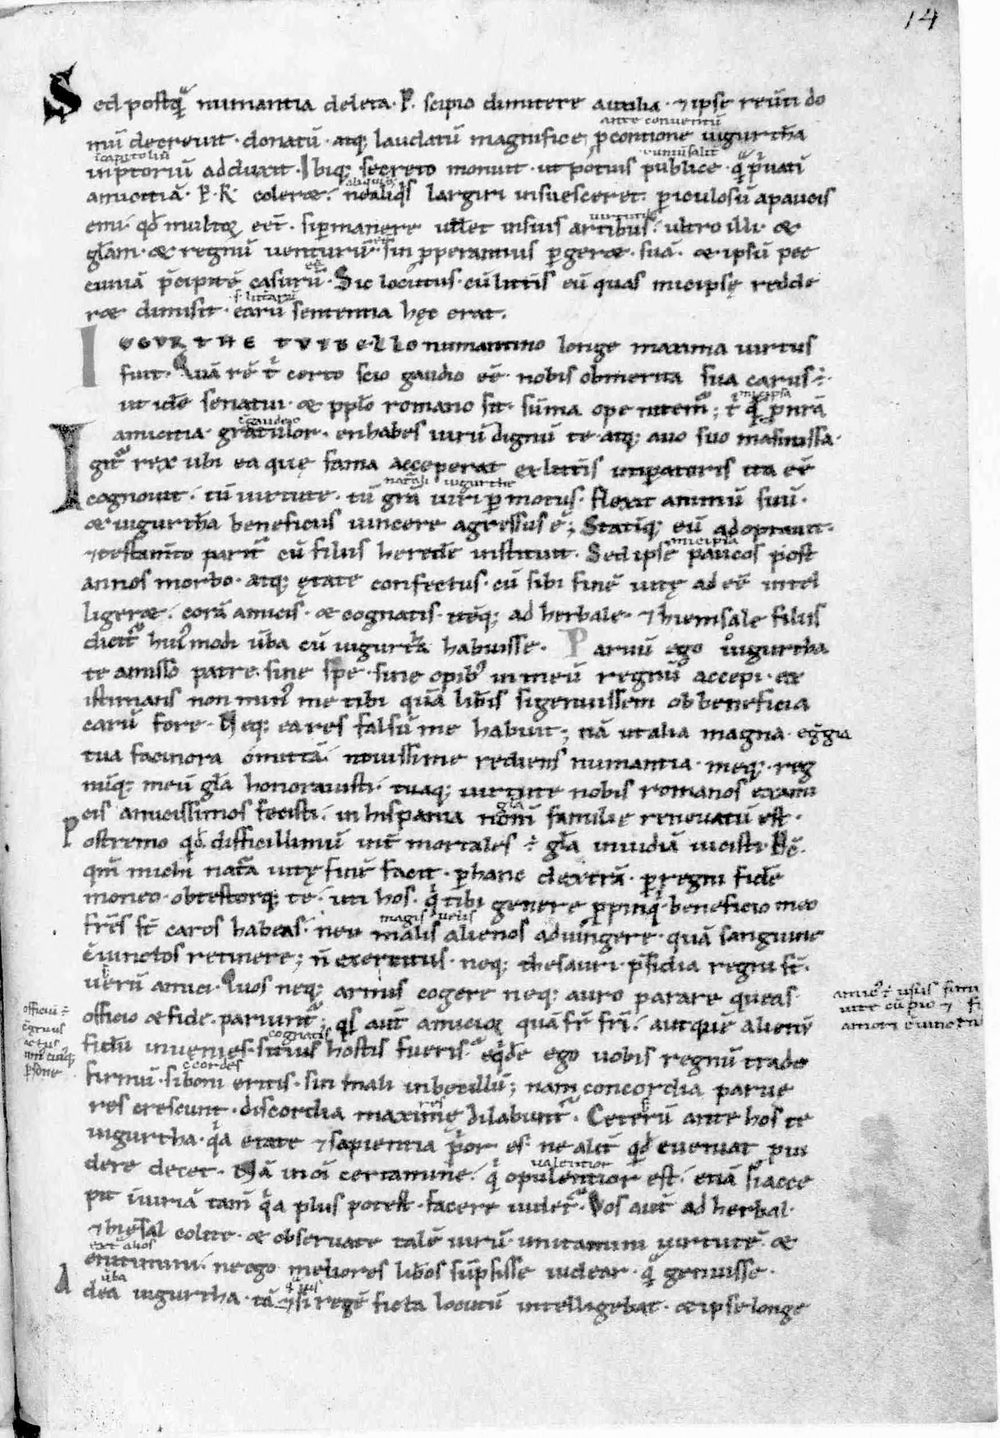 14
Sed postq̄ numantia deleta · P. scipio dimittere auxilia · ⁊ ipse reūti do
mū decreuit · donatū · atq; laudatū magnifice, p contione iugurthā
ante conuentū
in p̄toriū adduxit · Ibiq; secreto monuit · ut potius publice · q̄ p̄uati
amicitiā · P · R · coleret · neu aliq̄s largiri insuesceret · piculosū a paucis
emi · qd̄ multoꝝ eēt · Si pmanere uellet in suis artibus · ultro illi · &
uirtutib;
glām · & regnū uenturū · sin pperantius pgeret · suā · & ipsū pec
cuniā p̄cipitē casurū · Sic locutus · cū litt̄is eū quas micipsę redde
ret dimisit · earū sententia hęc erat.
s. litterarū
IUGURTHE TUI bello numantino longe maxima uirtus
fuit · Quā rē t̄ certo scio gaudio eē · nobis ob merita sua carus ē ·
ut idē senatui · & pplo romano sit · sūma ope nitem̄ ; t̄ q̄ p nr̄ā
micipsa
amicitia · gratulor · en habes uirū dignū te · atq; auo suo masinissa ·
Igit̄ rex ubi ea quę fama acceperat ex litt̄is imp̄atoris ita eē
cognouit · tū uirtute · tū gr̄a uiri pmotus · flexit animū suū ·
& iugurthā beneficiis uincere agressus ē ; Statiq; eū adoptauit ·
⁊ testam̄to parit̄ cū filiis heredē instituit · Sed ipse paucos post
micipsa
annos morbo · atq; ętate confectus · cū sibi finē uitę ad eē intel
ligeret · corā amicis · & cognatis · itēq; ad herbale · ⁊ hiemsale filiis
dicit̄ hui᾽modi ūba cū iugurtha habuisse · Paruū ego iugurtha
te amisso patre · sine spe · sine opib᾽ in meū regnū accepi · ex
istimans non min᾽ me tibi quā lib̄is si genuissem ob beneficia
carū fore · Neq; ea res falsū me habuit ; nā ut alia magna · eg̅gia
tua facinora omittā · nouissime rediens numantia · meq; · reg
nūq; meū gl̄a honorauisti · tuaq; uirtute nobis romanos ex ami
cis amicissimos fecisti · in hispania nom̄ familie renouatū est ·
Postremo qd̄ difficillimū int̄ mortales ē · gl̄a inuidiā uicisti · Nē̄
qm̄ michi nat̄a uitę finē facit · p hanc dextrā · p regni fidē
moneo · obtestorq; te · uti hos · q̄ tibi genere ppinq̄ · beneficio meo
fr̄es st̄ caros habeas · neu malis alienos adiungere · quā sanguine
magis uelis
c̄iunctos retinere ; n̄ exercitus · neq; thesauri · p̄sidia regni st̄ ·
uerū amici · Quos neq; armis cogere neq; auro parare queas ·
officio & fide · pariunt̄ ; q̄s aut̄ amicioꝝ quā fr̄ fr̄i · aut quē alienū
fidū inuenies · si tuis hostis fueris · eq̄dē ego uobis regnū trado
firmū · si boni eritis · sin mali inbecillū ; nam concordia parue
res crescunt · discordia maxime dilabunt̄ · Ceterū ante hos te
iugurtha · q̄a etate ⁊ sapientia p̄or es · ne alit̄ qd̄ eueniat pui
dere decet · Nā in oī certamine · q̄ opulentior est · etiā si acce
ualentior
pit iniuriā tam̄ q̄a plus potest · facere uidet̄ · Vos aut̄ ad herbal ·
⁊ hiēsal colite · & obseruate talē uirū · imitamini uirtutē · &
enitimini · ne ego meliores lib̄os sūpsisse uidear · q̄ genuisse ·
Ad ea iugurtha · tā & si regē ficta locutū intellegebat · & ipse longe